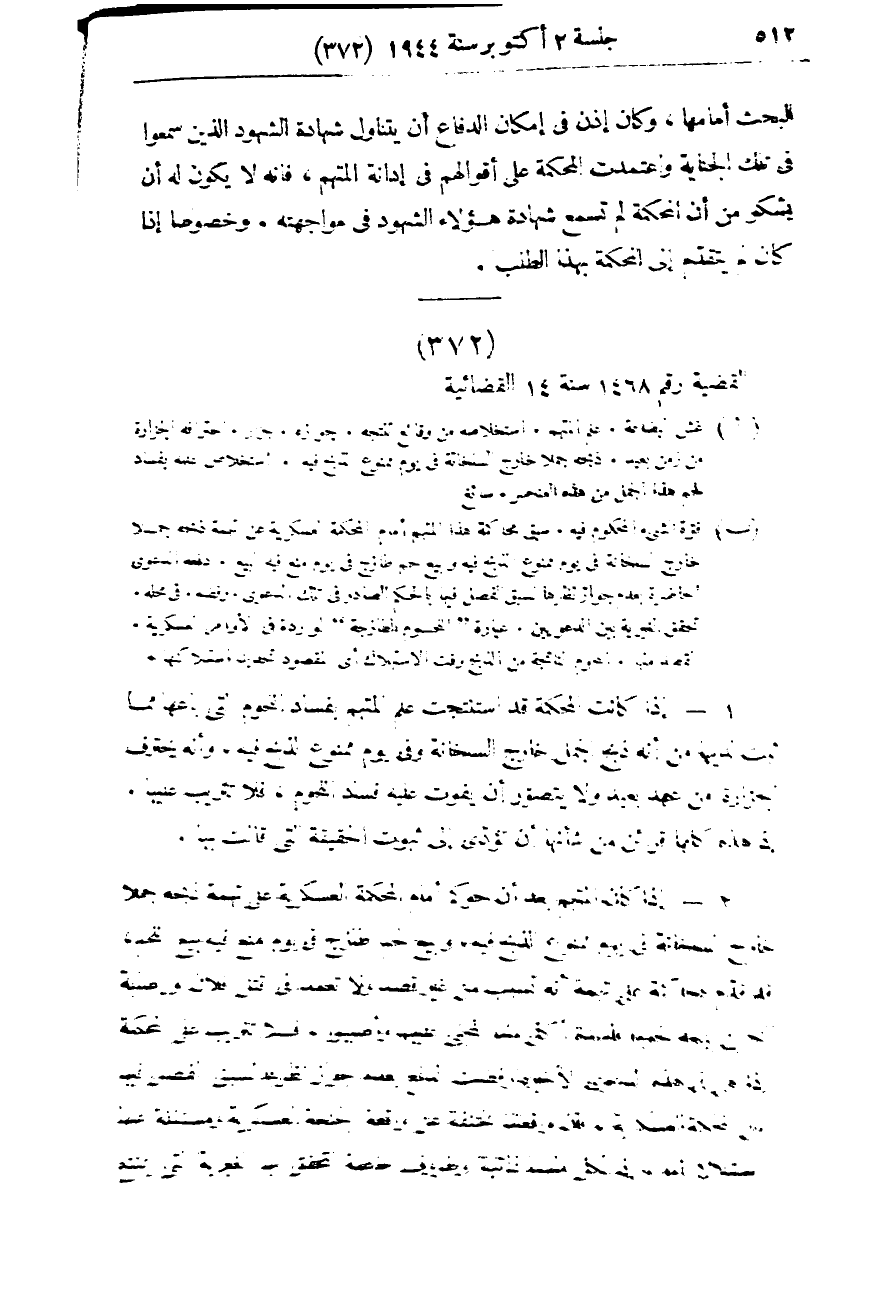 ٥١٢
جلسة ٢ أكتوبر سنة ١٩٤٤ (٣٧٢)
للبحث أمامها، وكان إذن فى إمكان الدفاع أن يتناول شهادة الشهود الذين سمعوا
فى تلك الجناية واعتمدت المحكمة على أقوالهم فى إدانة المتهم، فانه لا يكون له أن
يشكو من أن المحكمة لم تسمع شهادة هؤلاء الشهود فى مواجهته. وخصوصا إذا
كان لم يتقدّم إلى المحكمة بهذا الطلب.
(٣٧٢)
القضية رقم ١٤٦٨ سنة ١٤ القضائية
(أ) غش البضاعة. علم المتهم. استخلاصه من وقائع تنتجه. جوازه. جزار. احترافه الجزارة
من زمن بعيد. ذبحه جملا خارج السلخانة فى يوم ممنوع الذبح فيه. استخلاص علمه بفساد
لحم هذا الجمل من هذه العناصر. سائغ
(ب) قوّة الشىء المحكوم فيه. سبق محاكمة هذا المتهم أمام المحكمة العسكرية عن تهمة ذبحه جملا
خارج السلخانة فى يوم ممنوع الذبح فيه وبيع لحم طازج فى يوم منع فيه البيع. دفعه الدعوى
الحاضرة بعدم جواز نظرها لسبق الفصل فيها بالحكم الصادر فى تلك الدعوى. رفضه. فى محله.
تحقق الغيرية بين الدعويين. عبارة "اللحوم الطازجة" الواردة فى الأوامر العسكرية.
المقصود منها. اللحوم الناتجة من الذبح وقت الاستهلاك أى المقصود تحديد استهلاكها.
١ — إذا كانت المحكمة قد استنتجت علم المتهم بفساد اللحوم التى باعها مما
ثبت لديها من أنه ذبح الجمل خارج السلخانة وفى يوم ممنوع الذبح فيه، وأنه يحترف
الجزارة من عهد بعيد ولا يتصوّر أن يفوت عليه فساد اللحوم، فلا تثريب عليها.
إذ هذه كلها قرائن من شأنها أن تؤدّى إلى ثبوت الحقيقة التى قالت بها.
٢ — إذا كان المتهم بعد أن حوكم أمام المحكمة العسكرية على تهمة ذبحه جملا
خارج السلخانة فى يوم ممنوع الذبح فيه، وبيع لحم طازج فى يوم منع فيه بيع اللحم،
قد قدّم للمحاكمة على تهمة أنه تسبب من غير قصد ولا تعمد فى قتل فلان وإصابة
فلا تثريب على المحكمة
إذا هى فى هذه الدعوى الأخيرة رفضت الدفع بعدم جواز نظرها لسبق الفصل فيها
من المحكمة العسكرية. الجنحة العسكرية ومستقلة عنها